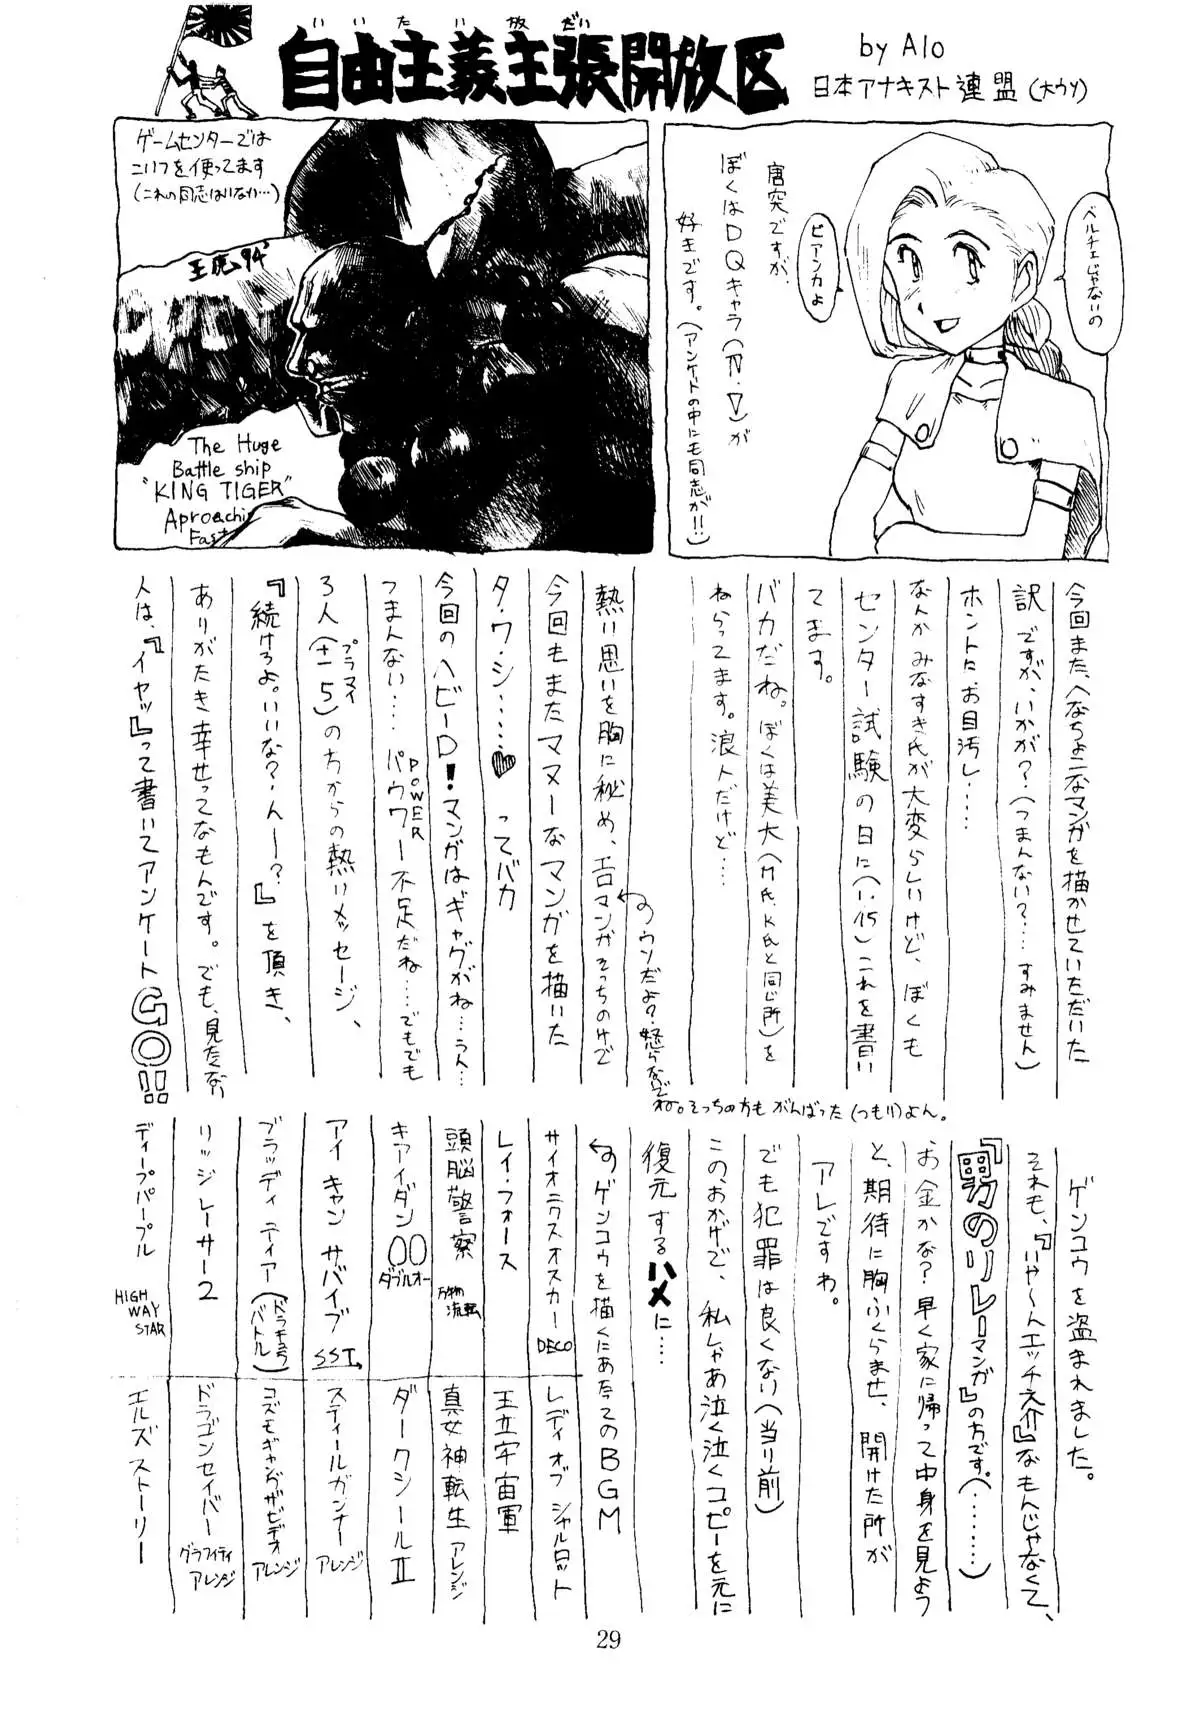 いいたい放だい
自由主義主張開放区
by Alo
日本アナキスト連盟(大ウソ)
ベルチェじゃないの
ビアンカよ
唐突ですが、
ぼくはDQキャラ(Ⅳ・Ⅴ)が
好きです。(アンケートの中にも同志が!!)
ゲームセンターでは
こいつを使ってます
(これの同志はいない…)
The Huge
Battle ship
"KING TIGER"
Aproachi
Fast
今回また、へなちょこなマンガを描かせていただいた
訳ですが、いかが?(つまんない?…すみません)
ホントに、お目汚し……
なんか みなすき氏が大変らしいけど、ぼくも
センター試験の日に(1.15)これを書い
てます。
バカだね。ぼくは美大(M氏、K氏と同じ所)を
ねらってます。浪人だけど…
熱い思いを胸に秘め、エロマンガそっちのけで
のウソだよ?怒らないで
ね。そっちの方も がんばった(つもり)よん。
今回もまたマヌーなマンガを描いた
タ・ワ・シ……♥ ってバカ
今回のヘビーD!マンガはギャグがね…うん…
つまんない…パウワー不足だね…でもでも
POWER
3人(±5)の方からの熱いメッセージ、
プラマイ
『続けろよ。いいな?・んー?』を頂き、
ありがたき幸せってなもんです。でも、見たくない
人は、『イヤッ』って書いてアンケートGO!!
ゲンコウを盗まれました。
それも、『いや〜んエッチ ネ介』なもんじゃなくて、
『男のリレーマンガ』の方です。(………)
お金かな?早く家に帰って中身を見よう
と、期待に胸ふくらませ、開けた所が
アレですわ。
でも犯罪は良くない(当り前)
この、おかげで、私しゃあ泣く泣くコピーを元に
復元するハメに……
のゲンコウを描くにあたってのBGM
サイオニクスオスカー DECO
レイ・フォース
頭脳警察 万物流転
キアイダン00
ダブルオー
アイ キャン サバイブ SST
ブラッディ ティアー(ドラキュラバトル)
リッジ レーサー2
ディープパープル HIGH WAY STAR
レディ オブ シャルロット
王立宇宙軍
真女神転生 アレンジ
ダークシールⅡ
スティールガンナー アレンジ
コズモギャングザビデオ アレンジ
ドラゴンセイバー グラフィティ アレンジ
エルズ ストーリー
29